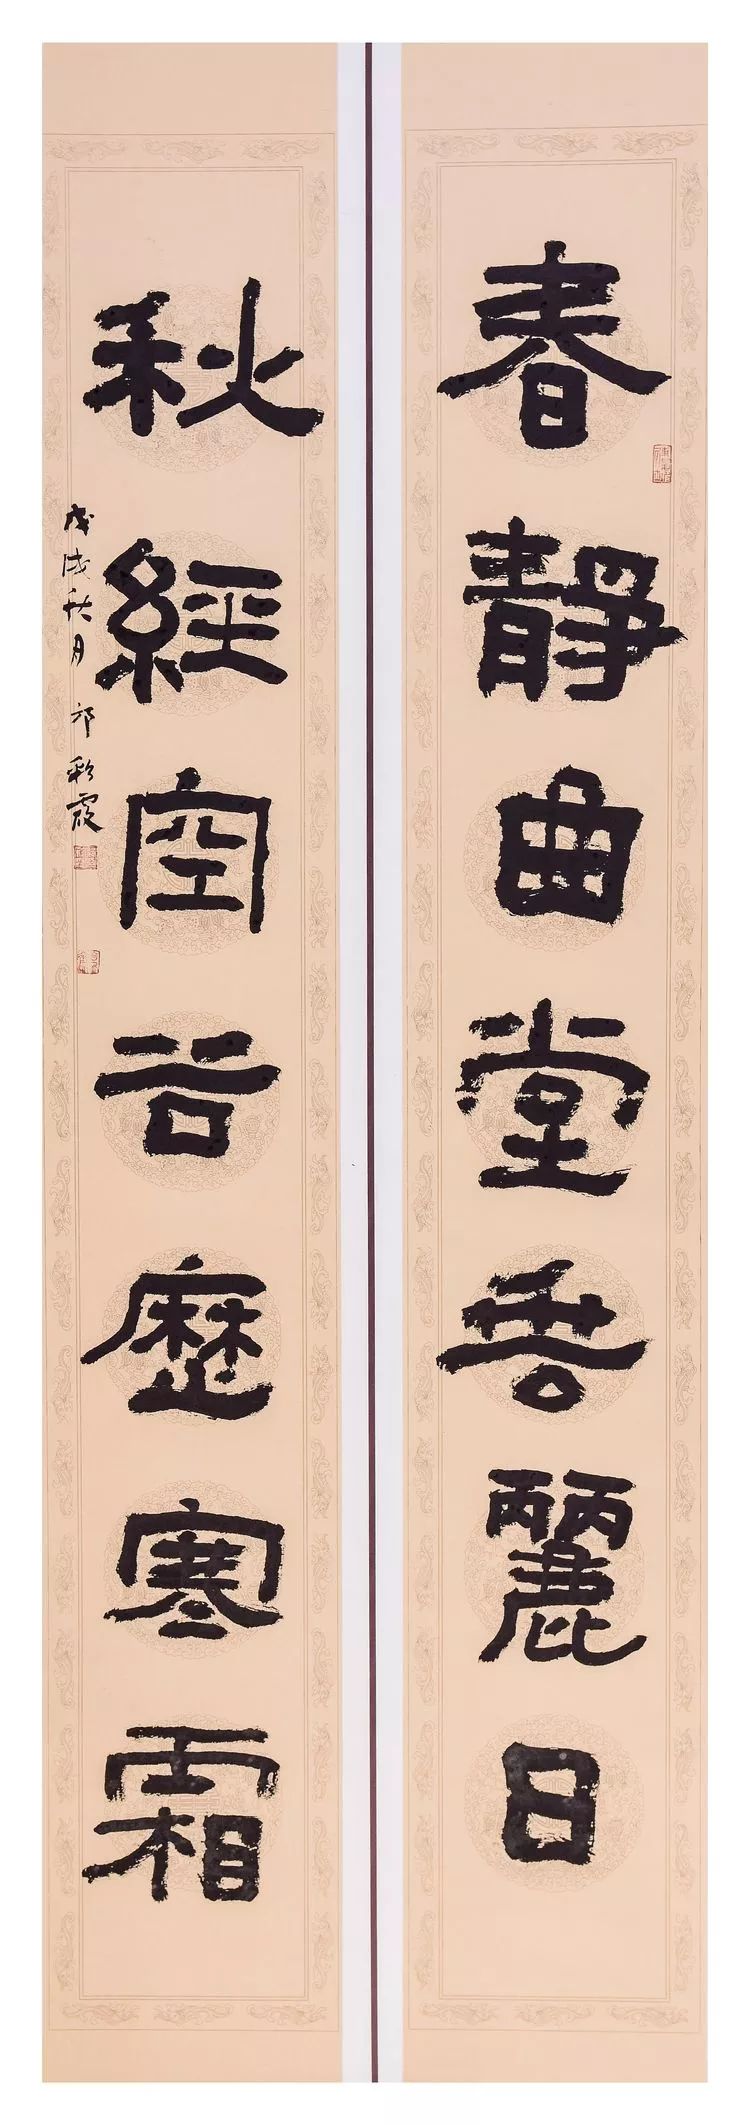 春靜曲堂麗日
秋經空谷歷寒霜
戊戌秋月 彩霞